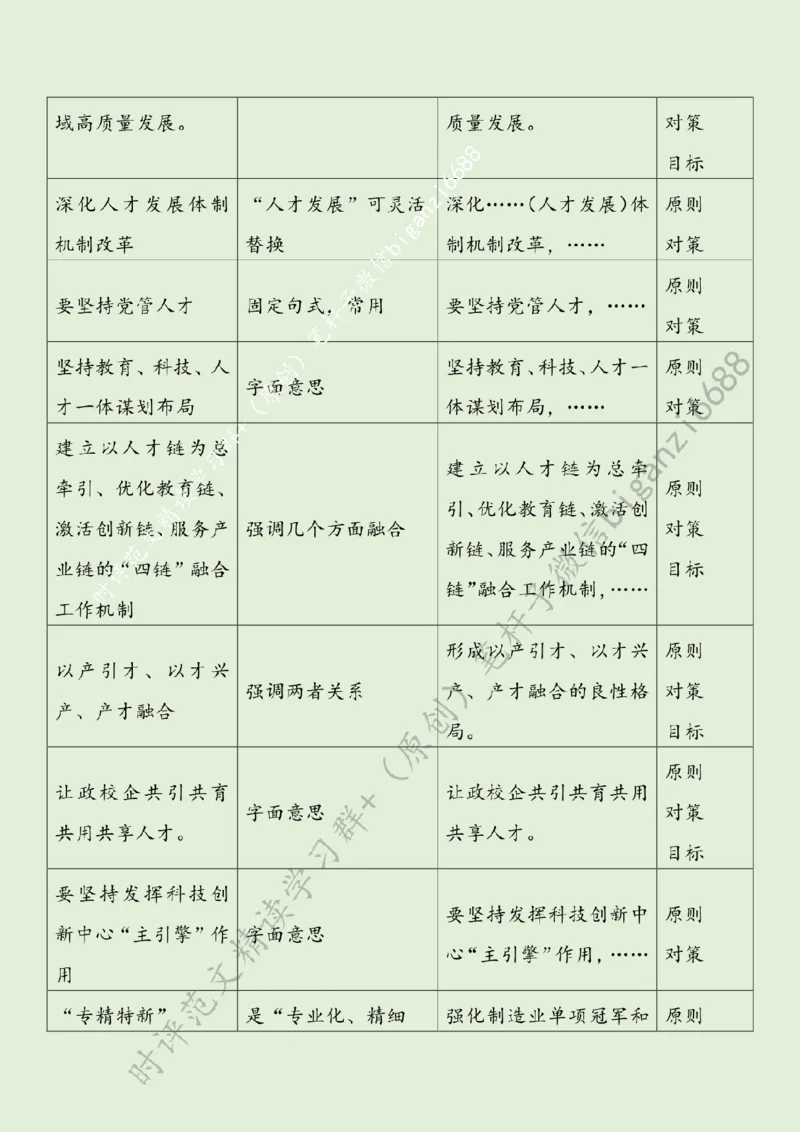 域高质量发展。
质量发展。
对策
目标
深化人才发展体制
机制改革
“人才发展”可灵活
替换
深化……(人才发展)体
制机制改革，……
原则
对策
要坚持党管人才
固定句式，常用
要坚持党管人才，……
原则
对策
坚持教育、科技、人
才一体谋划布局
字面意思
坚持教育、科技、人才一
体谋划布局，……
原则
对策
建立以人才链为总
牵引、优化教育链、
激活创新链、服务产
业链的“四链”融合
工作机制
强调几个方面融合
建立以人才链为总牵
引、优化教育链、激活创
新链、服务产业链的“四
链”融合工作机制，……
原则
对策
目标
以产引才、以才兴
产、产才融合
强调两者关系
形成以产引才、以才兴
产、产才融合的良性格
局。
原则
对策
目标
让政校企共引共育
共用共享人才。
字面意思
让政校企共引共育共用
共享人才。
原则
对策
目标
要坚持发挥科技创
新中心“主引擎”作
用
字面意思
要坚持发挥科技创新中
心“主引擎”作用，……
原则
对策
“专精特新”
是“专业化、精细
强化制造业单项冠军和
原则
时评范文精读学习群+（原创）笔杆子微信biganzi6688
时评范文精读学习群+（原创）笔杆子微信biganzi6688